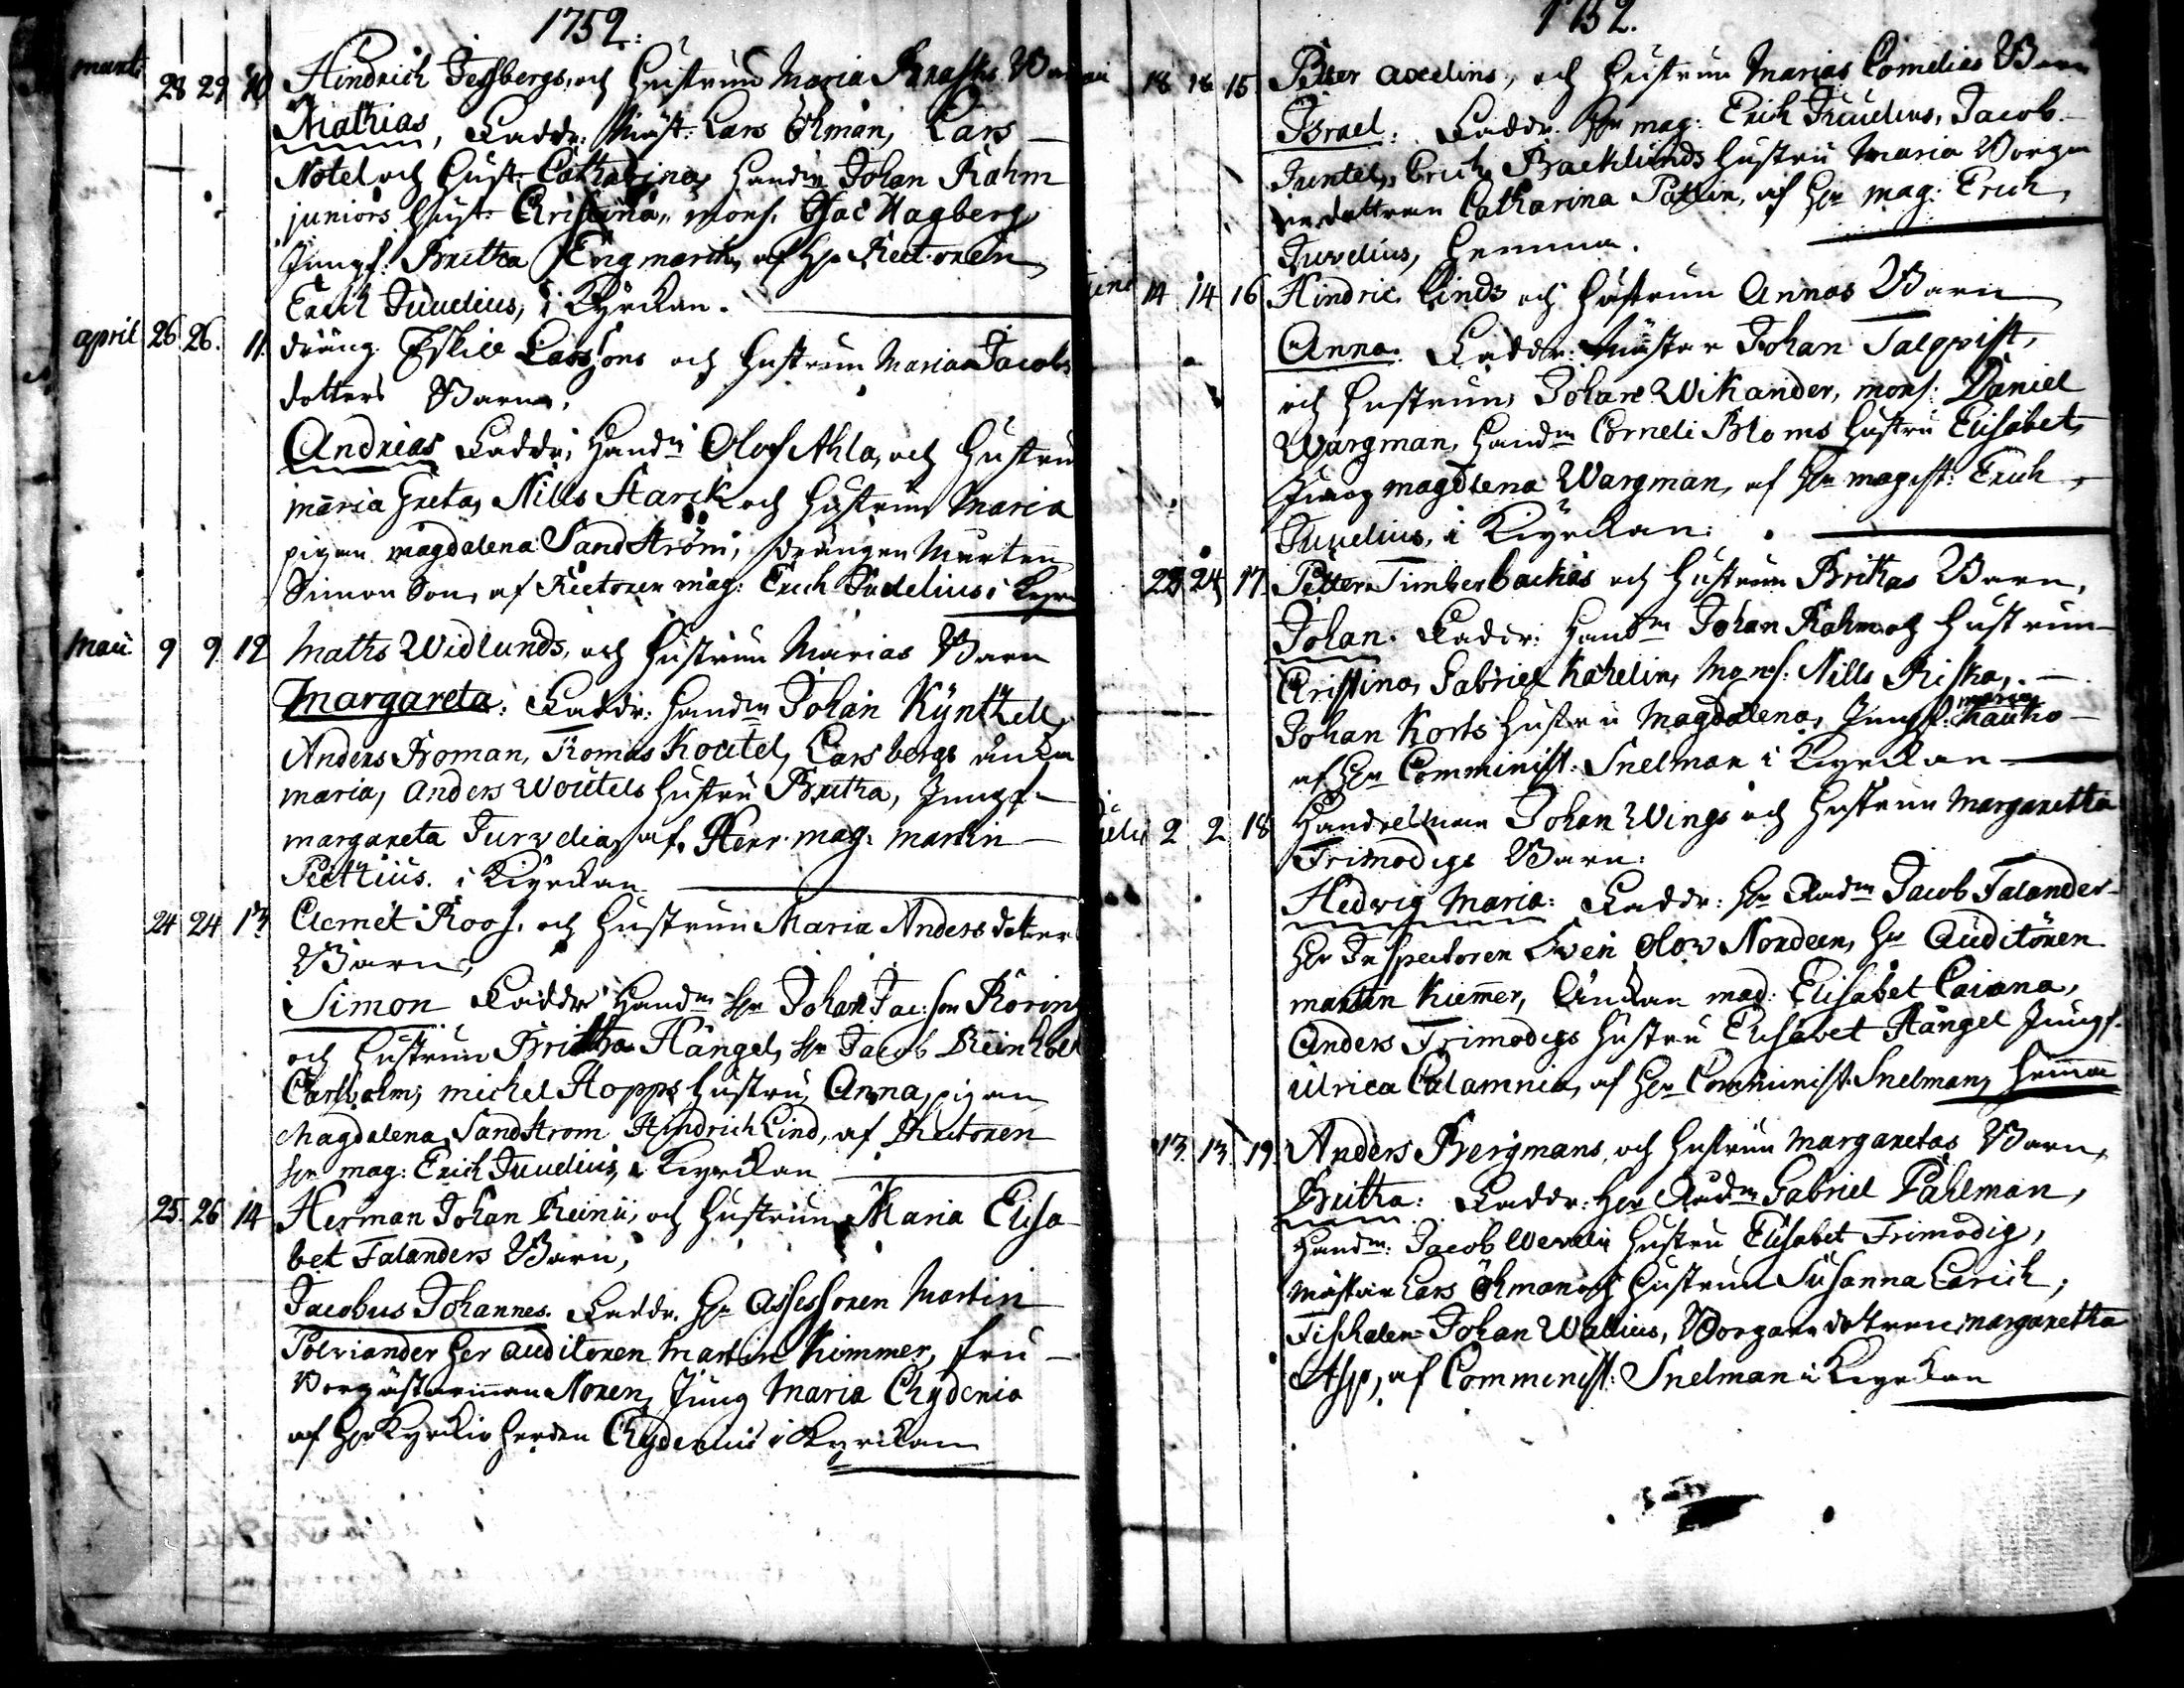 1752.
marti 28 29 10 Hindrich Tessbergs, och Hustrun Maria Krafts Barn
Mathias, Faddr: Mäst: Lars Öhman, Lars
Notel och Hust: Catharina, Handm Johan Rahm
juniors Hust: Christina, mons. Isac Hagberg
Jungf: Britha Engmarck, af Hr Rectoren
Erich Juvelius, i Kyrckan.
april 26 26. 11. dräng Eskill Larssons och Hustrun Maria Jacobs
dotters Barn,
Andreas Faddr: Handm Olof Ahla, och Hustru
maria Greta, Nills Starck och Hustrun Maria
pigan magdalena Sandström, drängen Murten
Simon Son, af Rectoren mag: Erich Juvelius i Kyrc
Maii 9 9 12 Maths Widlunds, och Hustrun Marias Barn
Margareta: Faddr: Handm Johan Kyntzell,
Anders Broman, Tomas Koutel, Lars bergs
maria, Anders Woutels Hustru Britha, Jungf:
margareta Juvelia, af Herr mag: martin
Pettius. i Kyrckan
24 24 13 Clemet Roos, och Hustrun Maria Anders dotters
Barn,
Simon Faddr Handm Hr Johan Jac:son Roring
och Hustrun Britha Hångel, Hr Jacob Reinhol
Carlholm, michel Hopps Hustru Anna, pigan
Magdalena Sandström Hindrich Lind, af Rectoren
Hr mag: Erich Juvelius, i Kyrckan
25 26 14 Herman Johan Reinii, och Hustrun Maria Elisa
bet Falanders Barn,
Jacobus Johannes. Faddr. Hr Assessoren Martin
Polviander Her Auditoren Martin Kimmer, fru
Borgmästarinnan Noren, Jung Maria Chydenia
af Hr Kyrckio Herden Chydenius i Kyrckan
1752.
18 18 15 Petter Axelins, och Hustrun Marias Cornelias Barn
Israel. Faddr. Hr mag: Erich Juvelius, Jacob
Juntel, Erich Backlunds Hustru Maria Borgar
dottren Catharina Patlin, af Hr mag: Erich
Juvelius, hemma.
Juni 14 14 16 Hindric Linds och Hustrun Annas Barn
Anna. Faddr: Mästar Johan Salqvist,
och Hustrun, Johan Wikander, mons: Daniel
Wargman, Handm Corneli Bloms Hustru Elisabet,
Jung magdlena Wargman, af Hr magist: Erich
Juvelius, i Kyrckan:
23 24 17 Petter Timberbackas och Hustrun Brithas Barn,
Johan. Faddr: Handm Johan Rahm och Hustrun
Cristina, Gabriel Kahelin, Mons: Nills Riska,
Johan Korts Hustru Magdalena, Jungf: maria Kauko
af Hr Comminist: Snelman i Kyrckan
Julii 2 2 18 Handelsman Johan Wings och Hustrun Margaretta
Frimodigs Barn:
Hedvig Maria: Faddr: Hr Rådm Jacob Falander
Hr Inspectoren Sven Olov Nordeen, Hr Auditören
martin Kiemer, Enckan mad: Elisabet Caiana,
Anders Frimodigs Hustru Elisabet Hångel Jungf.
Ulrica Calamnia, af Hr Comminist. Snelman, hemma
13. 13. 19. Anders Bergmans, och Hustrun Margaretas Barn,
Britha: Faddr: Her Rådm Gabriel Pahlman,
Handm: Jacob Hustru Elisabet Frimodig,
mästar Lars Öhman och Hustrun Susanna Carich,
Fischalen Johan Wallius, Borgare dottren margaretha
Asp, af Comminist: Snelman i Kyrckan